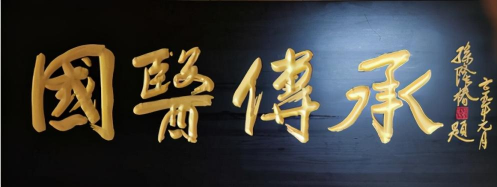 國醫傳承
孫隆椿題
九年元月